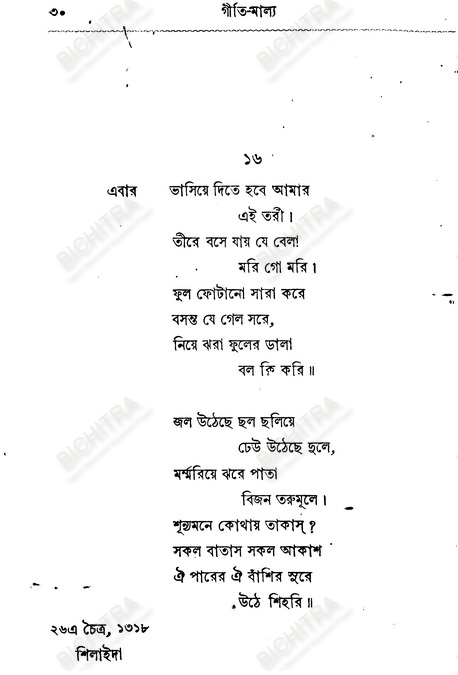 ৩০ গীতি-মাল্য
১৬
এবার ভাসিয়ে দিতে হবে আমার
এই তরী।
তীরে বসে যায় যে বেলা
মরি গো মরি।
ফুল ফোটানো সারা করে
বসন্ত যে গেল সরে,
নিয়ে ঝরা ফুলের ডালা
বল কি করি॥
জল উঠেছে ছল ছলিয়ে
ঢেউ উঠেছে দুলে,
মর্ম্মরিয়ে ঝরে পাতা
বিজন তরুমূলে।
শূন্যমনে কোথায় তাকাস্?
সকল বাতাস সকল আকাশ
ঐ পারের ঐ বাঁশির সুরে
উঠে শিহরি॥
২৬এ চৈত্র, ১৩১৮
শিলাইদা
BICHITRA
BICHITRA
BICHITRA
BICHITRA
BICHITRA
BICHITRA
BICHITRA
BICHITRA